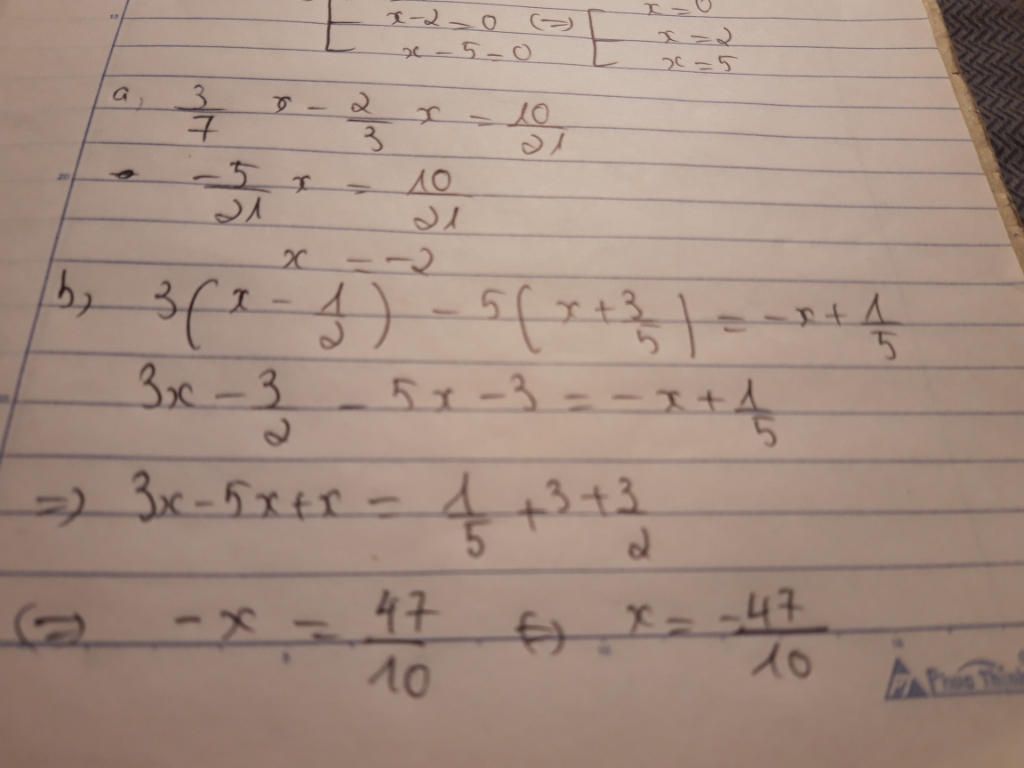 x=0
x-2=0 (=) x=2
x-5=0 x=5
a, 3/7 x - 2/3 x = 10/21
-5/21 x = 10/21
x = -2
b, 3(x - 1/2) - 5(x + 3/5) = -x + 1/5
3x - 3/2 - 5x - 3 = -x + 1/5
=) 3x - 5x + x = 1/5 + 3 + 3/2
(=) -x = 47/10 (=) x = -47/10